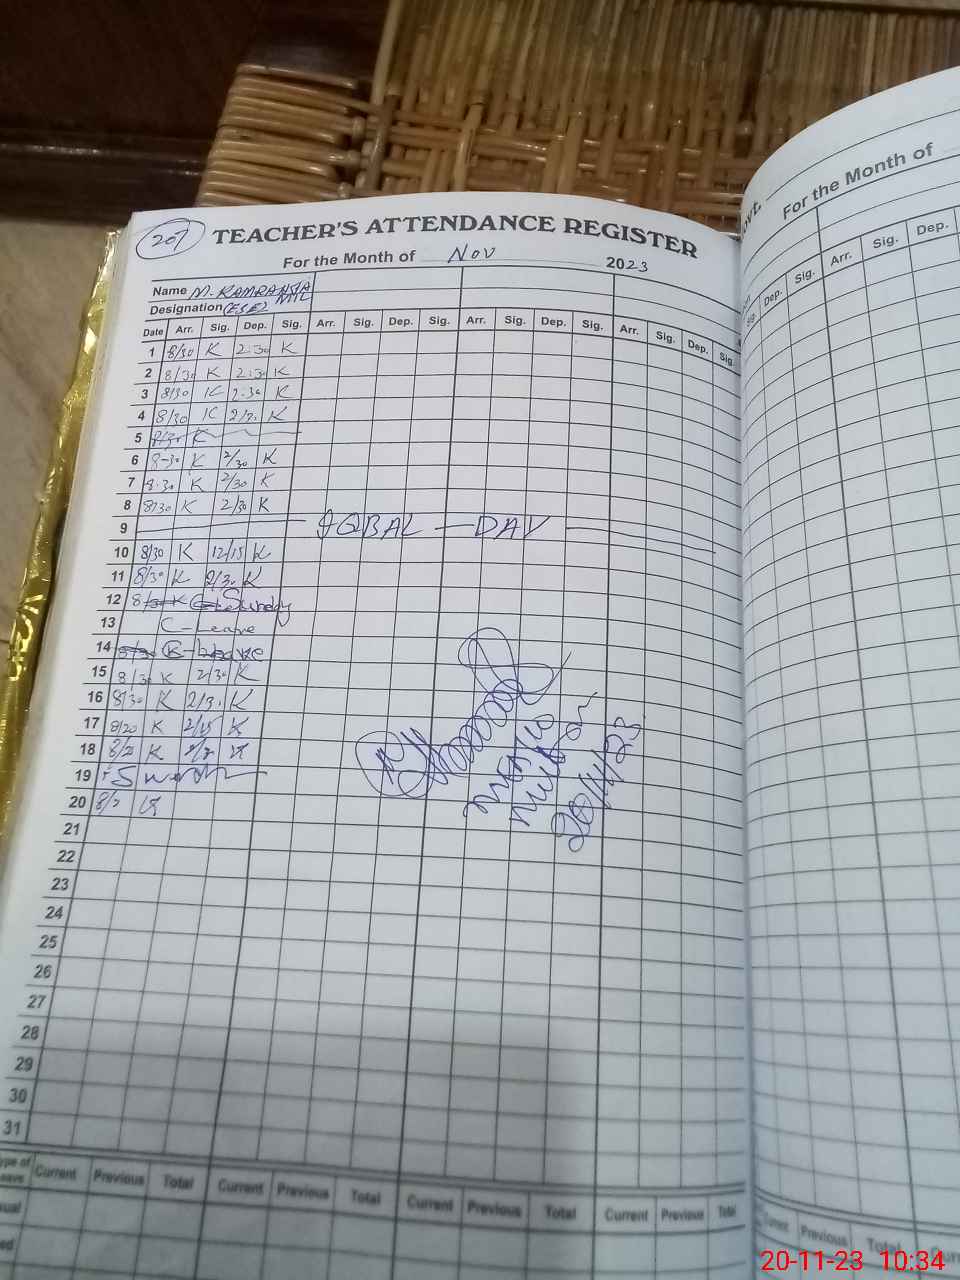 207
TEACHER'S ATTENDANCE REGISTER
For the Month of Nov 2023
Name M. KAMRAN
Designation (ESE)
Date Arr. Sig. Dep. Sig. Arr. Sig. Dep. Sig. Arr. Sig. Dep. Sig. Arr. Sig. Dep. Sig.
1 8/30 K 2:30 K
2 8/30 K 2:30 K
3 8/30 K 2:30 K
4 8/30 K K
5 8/30 K
6 8-30 K 2/30 K
7 8.30 K 2/30 K
8 8/30 K 2/30 K
9 IQBAL DAY
10 8/30 K 12/15 K
11 8/30 K 2/30 K
12 Sunday
13 C-Leave
14 C-Leave
15 8/30 K 2/30 K
16 8/30 K 2/30 K
17 8/20 K 2/15 K
18 K K
19
20
21
22
23
24
25
26
27
28
29
30
31
20/11/23
Type of Leave Current Previous Total Current Previous Total Current Previous Total Current Previous Total
For the Month of
Dep. Sig. Arr. Sig. Dep.
Current Previous Total
20-11-23 10:34